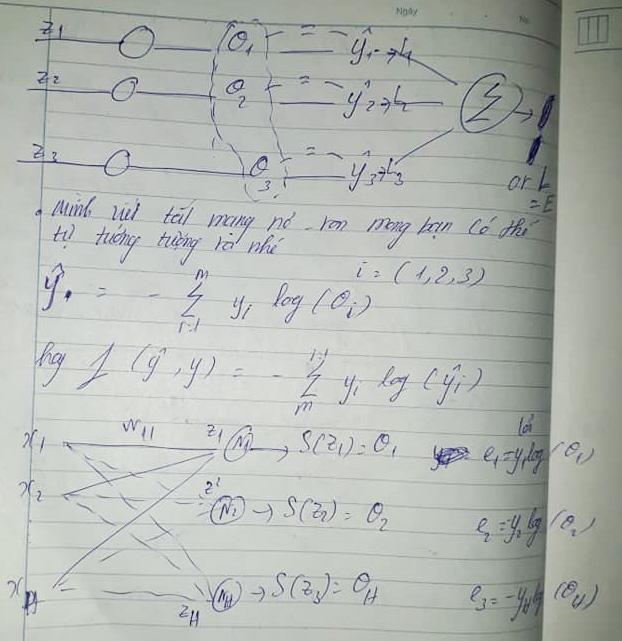 Ngày
No.
z1 O1 ŷ1 → L1
z2 O2 ŷ2 → L2 Σ →
z3 O3 ŷ3 → L3
or L
= E
. Mình viết tắt mạng nơ-ron mong bạn có thể
tự tưởng tượng ra nhé
i = (1,2,3)
ŷ = - Σ yi log(Oi)
hay L (ŷ, y) = - Σ yi log(ŷi)
x1 W11 z1 N1 → S(z1) = O1 lỗi e1 = y1 log(O1)
x2 z2 N2 → S(z2) = O2 e2 = y2 log(O2)
xH zH NH → S(z3) = OH e3 = -yH log(OH)